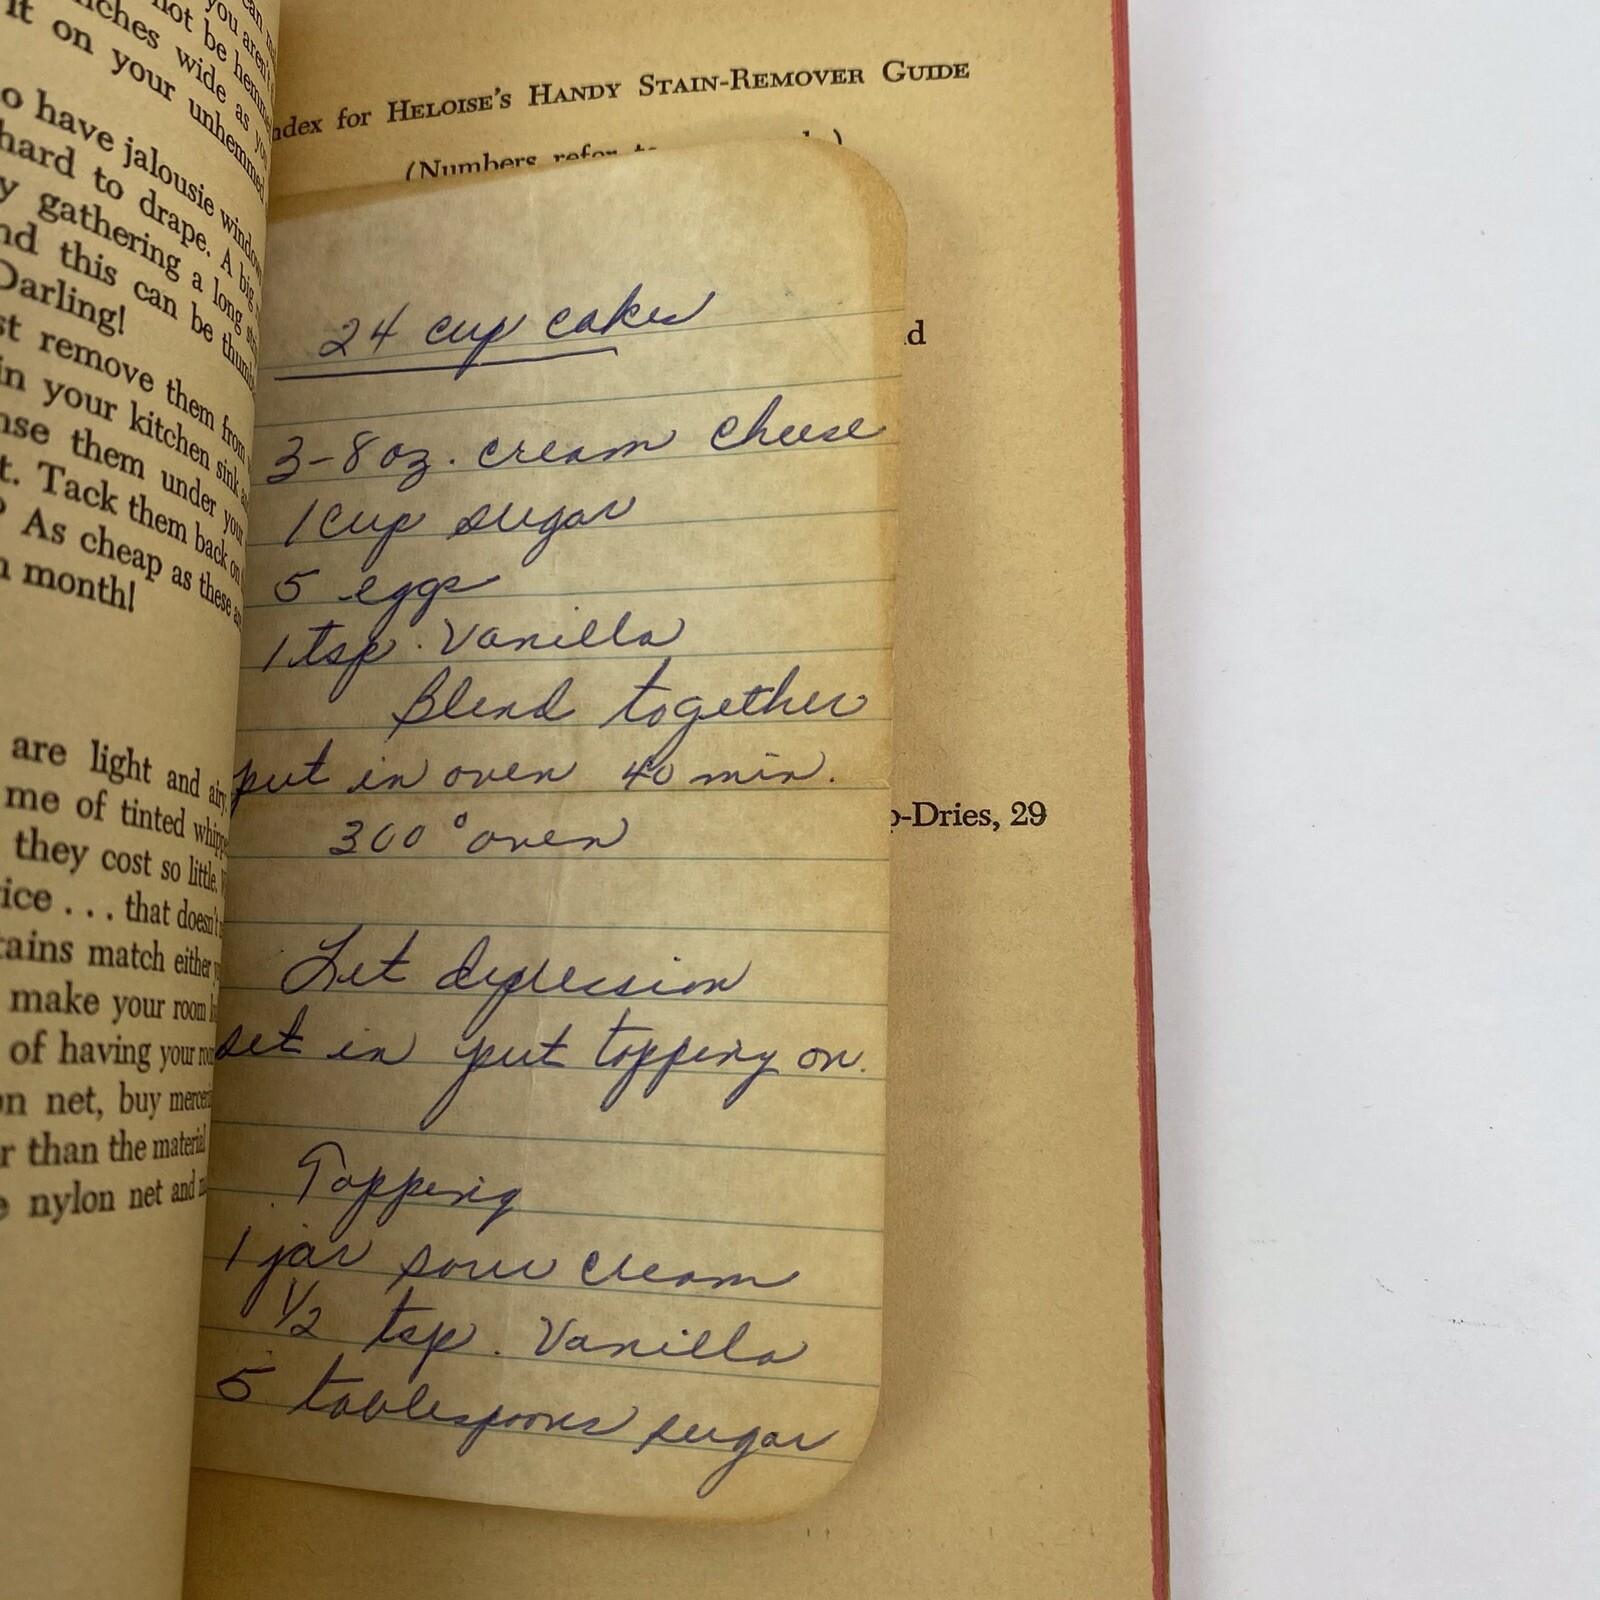 can
you aren't
not be hemmed
inches wide as you
it on your unhemmed
o have jalousie windows
hard to drape. A big
y gathering a long
nd this can be
Darling!
st remove them from
in your kitchen sink
nse them under your
t. Tack them back on
? As cheap as these
n month!
are light and airy
me of tinted
they cost so little.
ice . . . that doesn't
tains match either
make your room
of having your
on net, buy
r than the material
e nylon net and
ndex for HELOISE'S HANDY STAIN-REMOVER GUIDE
(Numbers refer to
d
p-Dries, 29
24 cup cakes
3-8 oz. cream cheese
1 cup sugar
5 eggs
1 tsp. Vanilla
Blend together
put in oven 40 min.
300° oven
Let depression
set in put topping on.
Topping
1 jar sour cream
1/2 tsp. Vanilla
5 tablespoons sugar